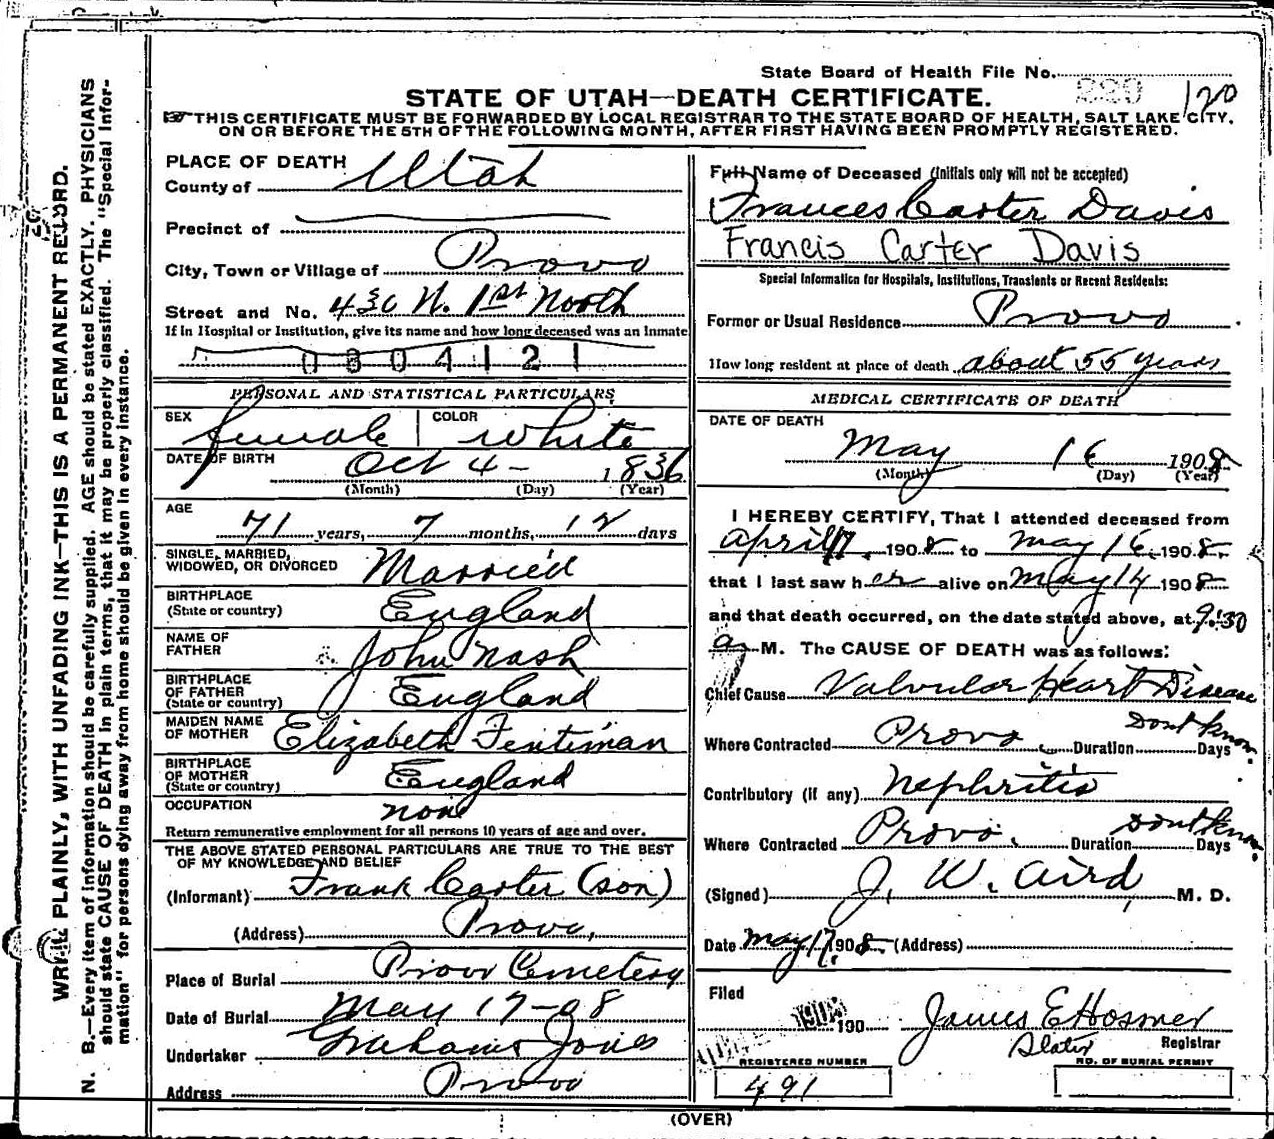 State Board of Health File No. 229 120
STATE OF UTAH—DEATH CERTIFICATE.
☞THIS CERTIFICATE MUST BE FORWARDED BY LOCAL REGISTRAR TO THE STATE BOARD OF HEALTH, SALT LAKE CITY,
ON OR BEFORE THE 5TH OF THE FOLLOWING MONTH, AFTER FIRST HAVING BEEN PROMPTLY REGISTERED.
WRITE PLAINLY, WITH UNFADING INK—THIS IS A PERMANENT RECORD.
N. B.—Every item of information should be carefully supplied. AGE should be stated EXACTLY. PHYSICIANS
should state CAUSE OF DEATH in plain terms, that it may be properly classified. The "Special Infor-
mation" for persons dying away from home should be given in every instance.
PLACE OF DEATH
County of Utah
Precinct of
City, Town or Village of Provo
Street and No. 430 N. 1st North
If in Hospital or Institution, give its name and how long deceased was an inmate
0804121
PERSONAL AND STATISTICAL PARTICULARS
SEX female COLOR White
DATE OF BIRTH Oct 4 - 1836
(Month) (Day) (Year)
AGE
71 years, 7 months, 12 days
SINGLE, MARRIED,
WIDOWED, OR DIVORCED Married
BIRTHPLACE
(State or country) England
NAME OF
FATHER John Nash
BIRTHPLACE
OF FATHER
(State or country) England
MAIDEN NAME
OF MOTHER Elizabeth Fentiman
BIRTHPLACE
OF MOTHER
(State or country) England
OCCUPATION none
Return remunerative employment for all persons 10 years of age and over.
THE ABOVE STATED PERSONAL PARTICULARS ARE TRUE TO THE BEST
OF MY KNOWLEDGE AND BELIEF
(Informant) Frank Carter (son)
(Address) Provo,
Place of Burial Provo Cemetery
Date of Burial May 17-08
Undertaker Grahams Jones
Address Provo
Full Name of Deceased (Initials only will not be accepted)
Frances Carter Davis
Francis Carter Davis
Special Information for Hospitals, Institutions, Transients or Recent Residents:
Former or Usual Residence Provo
How long resident at place of death about 55 years
MEDICAL CERTIFICATE OF DEATH
DATE OF DEATH
May 16 1908
(Month) (Day) (Year)
I HEREBY CERTIFY, That I attended deceased from
April 17, 1908 to May 16, 1908,
that I last saw her alive on May 14 1908
and that death occurred, on the date stated above, at 9:30
a M. The CAUSE OF DEATH was as follows:
Chief Cause Valvular Heart Disease
Where Contracted Provo Duration Dont know Days
Contributory (if any) Nephritis
Where Contracted Provo. Duration Dont know Days
(Signed) J. W. Aird, M. D.
Date May 17, 1908 (Address)
Filed
190 James E Hosmer
Registrar
REGISTERED NUMBER NO. OF BURIAL PERMIT
491
(OVER)